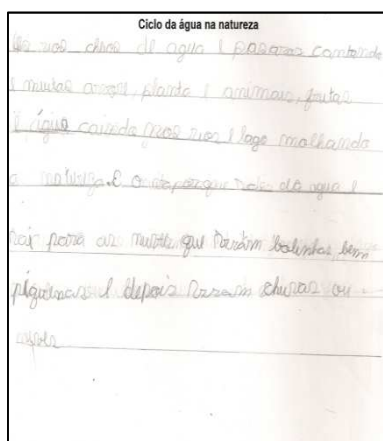 Ciclo da água na natureza
os rios cheos de agua e pasaros cantando
e muitas arvores, planta e animais, frutas
e água caindo nos rios e lago molhando
a natureza. E o vapor que da agua e
vai para as nuvens que viram bolinhas bem
piquinas e depois viram chuvas ou